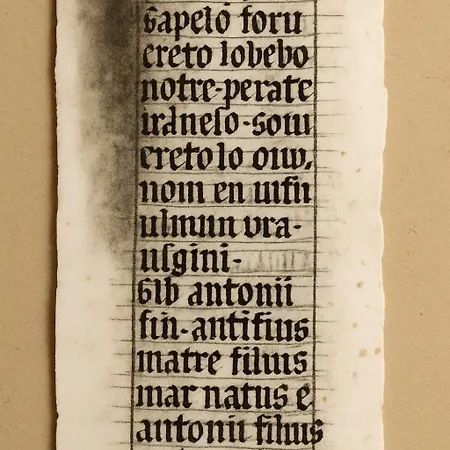 Gapelō foru
ereto lobebo
notre-perate
irdnelo-sotu
ereto lo oiw.
nom en uifn
ulmun vra-
ulgini-
Gib antonii
fin-antifius
matre filius
mar natus e
antonii filius